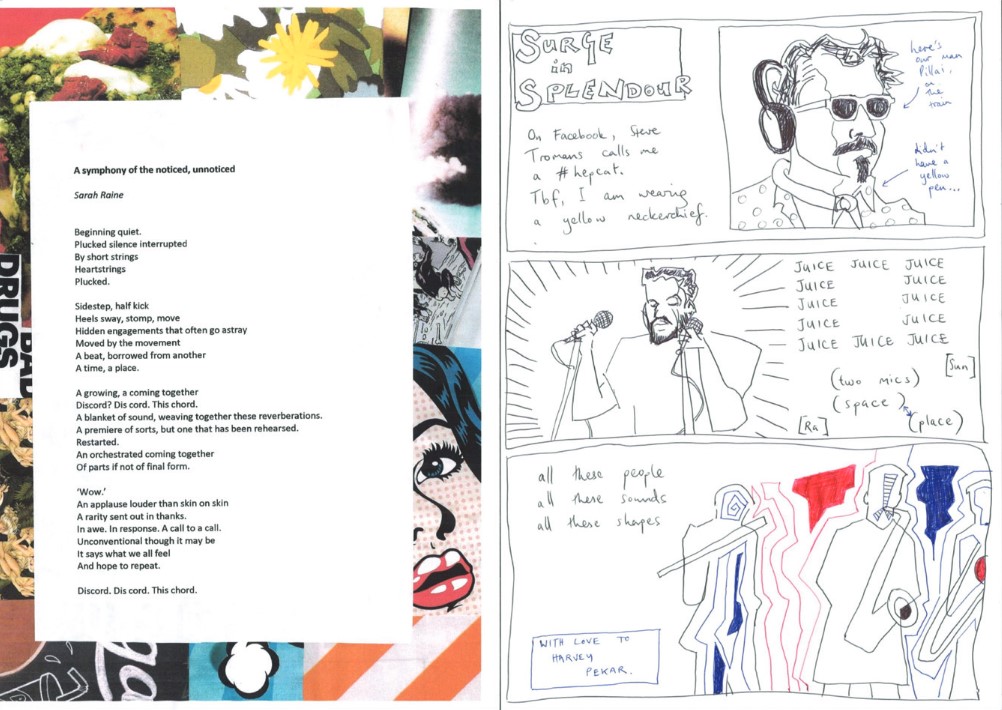 A symphony of the noticed, unnoticed
Sarah Raine
Beginning quiet.
Plucked silence interrupted
By short strings
Heartstrings
Plucked.
Sidestep, half kick
Heels sway, stomp, move
Hidden engagements that often go astray
Moved by the movement
A beat, borrowed from another
A time, a place.
A growing, a coming together
Discord? Dis cord. This chord.
A blanket of sound, weaving together these reverberations.
A premiere of sorts, but one that has been rehearsed.
Restarted.
An orchestrated coming together
Of parts if not of final form.
‘Wow.’
An applause louder than skin on skin
A rarity sent out in thanks.
In awe. In response. A call to a call.
Unconventional though it may be
It says what we all feel
And hope to repeat.
Discord. Dis cord. This chord.
DRUGS
BAD
SURGE
in
SPLENDOUR
On Facebook, Steve
Tromans calls me
a #hepcat.
Tbf, I am wearing
a yellow neckerchief.
here's
our man
Pillai,
on
the
train
didn't
have a
yellow
pen...
JUICE JUICE JUICE
JUICE JUICE
JUICE JUICE
JUICE JUICE
JUICE JUICE JUICE
[Sun]
(two mics)
(space)
[Ra]
(place)
all these people
all these sounds
all these shapes
WITH LOVE TO
HARVEY
PEKAR.